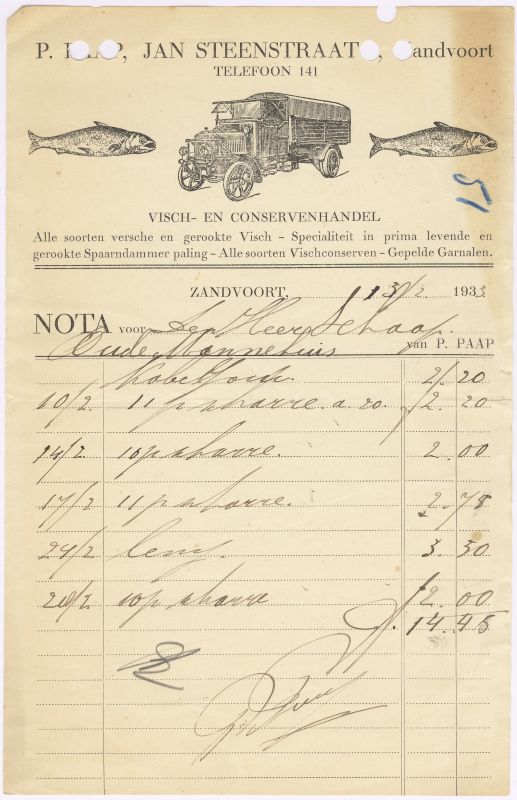 P. PAAP, JAN STEENSTRAAT , Zandvoort
TELEFOON 141
51
VISCH- EN CONSERVENHANDEL
Alle soorten versche en gerookte Visch – Specialiteit in prima levende en
gerookte Spaarndammer paling – Alle soorten Vischconserven – Gepelde Garnalen.
ZANDVOORT, 13/2 1933
NOTA voor den Heer Schaap.
Oude Mannehuis van P. PAAP
2.20
10/2 11 p scharre a 20. 2.20
14/2 10 p scharre. 2.00
17/2 11 p scharre. 2.75
24/2 3.30
10 p scharre 2.00
14.45